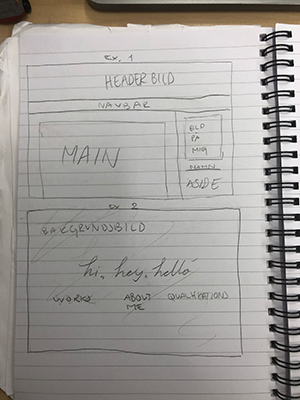 Ex. 1
HEADERBILD
NAVBAR
MAIN
BILD
PÅ
MIG
NAMN
ASIDE
Ex 2
BAKGRUNDSBILD
hi, hey, hello
WORKS
ABOUT
ME
QUALIFICATIONS